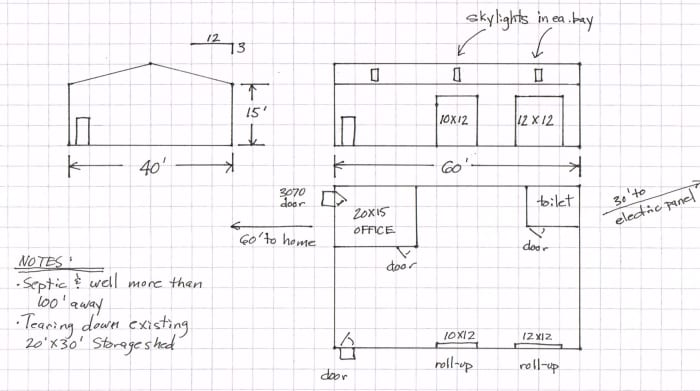 skylights in ea. bay
12
3
15'
10X12
12 X 12
40'
60'
3070
door
20X15
OFFICE
toilet
30' to
electric panel
60' to home
door
door
NOTES:
• Septic & well more than
100' away
• Tearing down existing
20'X30' Storage shed
10X12
12X12
roll-up
roll-up
door